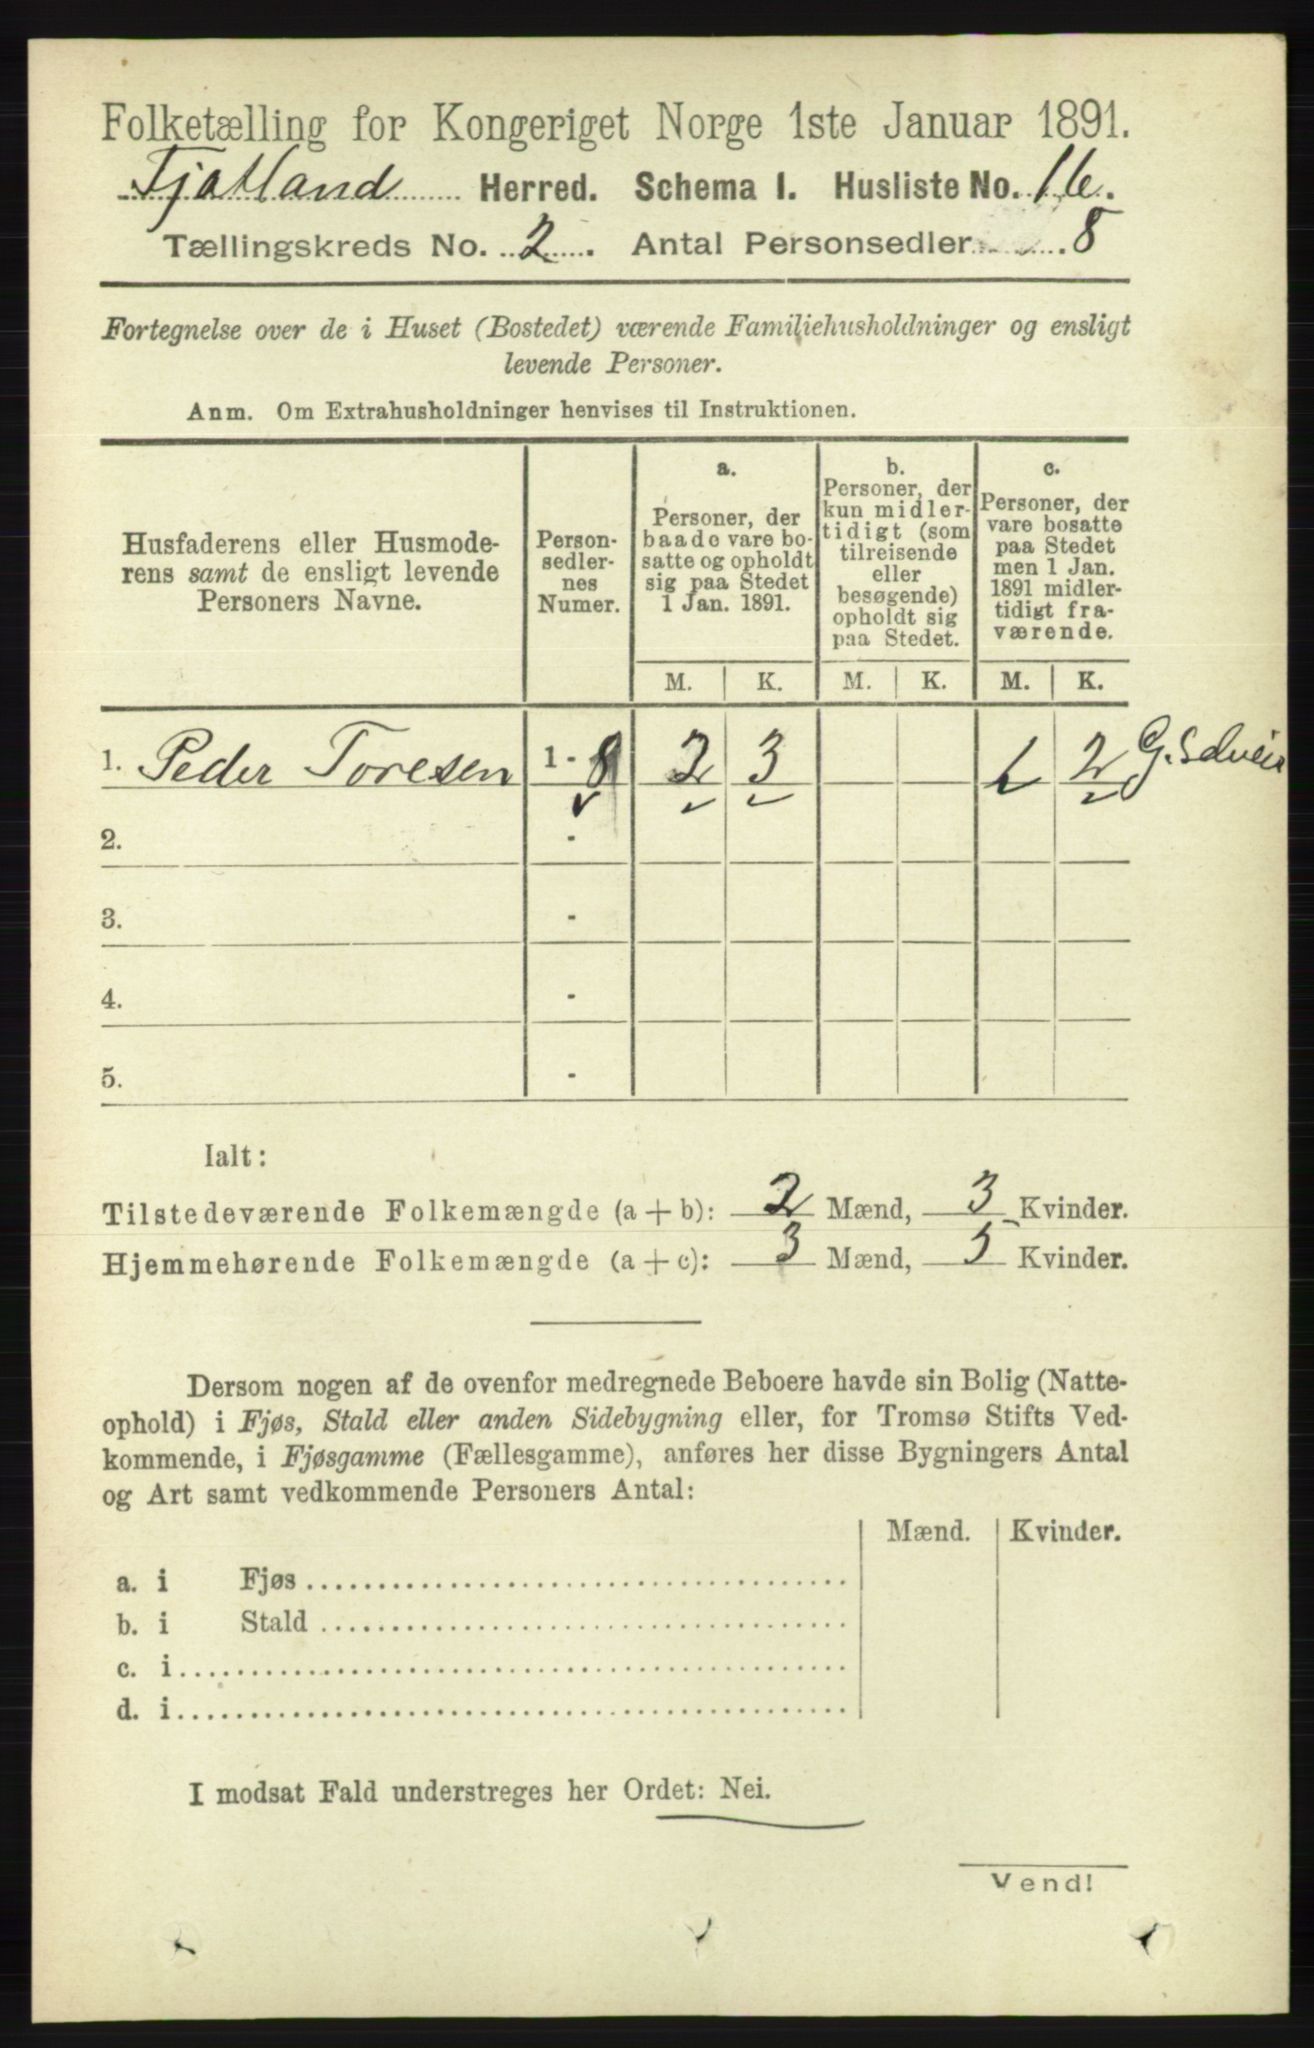 Folketælling for Kongeriget Norge 1ste Januar 1891.
Tjatland Herred. Schema I. Husliste No. 16.
Tællingskreds No. 2. Antal Personsedler 8
Fortegnelse over de i Huset (Bostedet) værende Familiehusholdninger og ensligt
levende Personer.
Anm. Om Extrahusholdninger henvises til Instruktionen.
Husfaderens eller Husmode-
rens samt de ensligt levende
Personers Navne.
Person-
sedler-
nes
Numer.
a.
Personer, der
baade vare bo-
satte og opholdt
sig paa Stedet
1 Jan. 1891.
b.
Personer, der
kun midler-
tidigt (som
tilreisende
eller
besøgende)
opholdt sig
paa Stedet.
c.
Personer, der
vare bosatte
paa Stedet
men 1 Jan.
1891 midler-
tidigt fra-
værende.
M. K. M. K. M. K.
1. Peder Toresen 1 - 8 2 3 1 2
2. -
3. -
4. -
5. -
Ialt:
Tilstedeværende Folkemængde (a + b): 2 Mænd, 3 Kvinder.
Hjemmehørende Folkemængde (a + c): 3 Mænd, 5 Kvinder.
Dersom nogen af de ovenfor medregnede Beboere havde sin Bolig (Natte-
ophold) i Fjøs, Stald eller anden Sidebygning eller, for Tromsø Stifts Ved-
kommende, i Fjøsgamme (Fællesgamme), anføres her disse Bygningers Antal
og Art samt vedkommende Personers Antal:
Mænd. Kvinder.
a. i Fjøs
b. i Stald
c. i
d. i
I modsat Fald understreges her Ordet: Nei.
Vend!